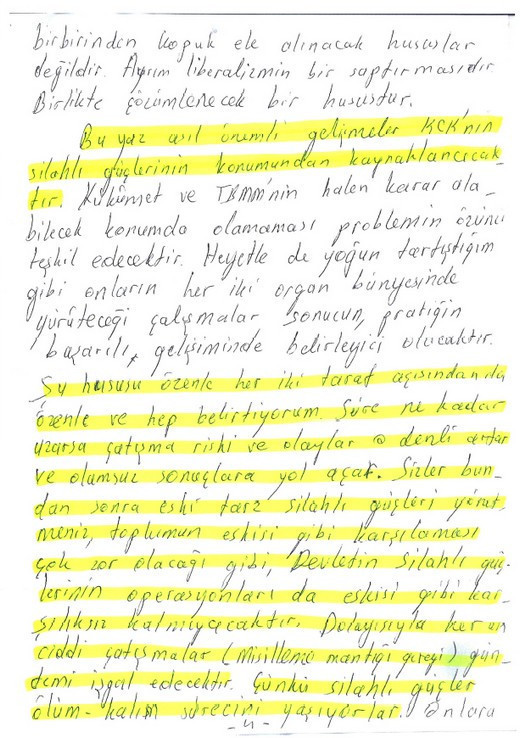 birbirinden kopuk ele alınacak hususlar
değildir. Ayrım liberalizmin bir saptırmasıdır.
Birlikte çözümlenecek bir husustur.
Bu yaz asıl önemli gelişmeler KCK'nin
silahlı güçlerinin konumundan kaynaklanacak-
tır. Hükümet ve TBMM'nin halen karar ala-
bilecek konumda olamaması problemin özünü
teşkil edecektir. Heyetle de yoğun tartıştığım
gibi onların her iki organ bünyesinde
yürüteceği çalışmalar sonucun, pratiğin
başarılı, gelişiminde belirleyici olacaktır.
Şu hususu özenle her iki taraf açısından da
özenle ve hep belirtiyorum. Süre ne kadar
uzarsa çatışma riski ve olaylar o denli artar
ve olumsuz sonuçlara yol açar. Sizler bun-
dan sonra eski tarz silahlı güçleri yürüt-
meniz, toplumun eskisi gibi karşılaması
çok zor olacağı gibi, Devletin silahlı güç-
lerinin operasyonları da eskisi gibi kar-
şılıksız kalmıyacaktır. Dolayısıyla her an
ciddi çatışmalar (Misilleme mantığı gereği) gün-
demi işgal edecektir. Çünkü silahlı güçler
ölüm-kalım sürecini yaşıyorlar. Onlara
-4-